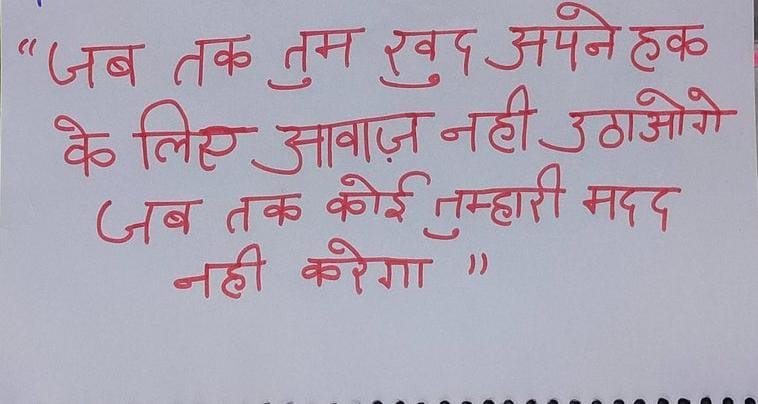 “जब तक तुम खुद अपने हक
के लिए आवाज़ नही उठाओगे
जब तक कोई तुम्हारी मदद
नही करेगा ”